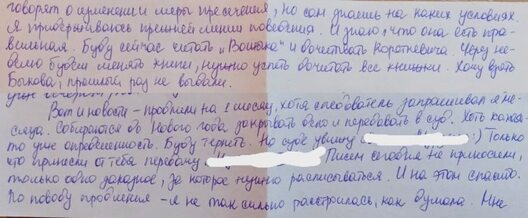 говорят о изменении меры пресечения, но сам знаешь на каких условиях.
Я придерживаюсь прежней линии поведения. И знаю, что она есть пра-
вильная. Буду сейчас читать "Вольна" и дочитывать Короткевича. Через не-
делю будем менять книги, нужно успеть дочитать все книжки. Хочу взять
Быкова, прошлый раз не выдали.
Вот и новости - продлили на 1 месяц, хотя следователь запрашивал 2 ме-
сяца. Собираются до Нового года закрывать дело и передавать в суд. Хоть какая-
то уже определенность. Буду терпеть. На суде увижу :) Только
что принесли от тебя передачу Писем сегодня не приносили,
только одно заказное, за которое нужно расписываться. И на этом спасибо.
По поводу продления - я не так сильно расстроилась, как думала. Мне